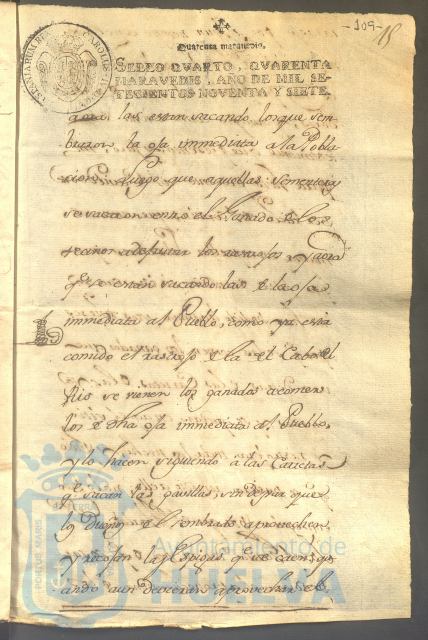 -109-
Quarenta maravedis.
SELLO QUARTO, QUARENTA
MARAVEDIS, AÑO DE MIL SE-
TECIENTOS NOVENTA Y SIETE.
estan sacando los que sem-
braron la oja immediata a la Pobla
cion: Luego que aquellas sementeras
se el Ganado
a disfrutar los y aora
que se estan sacando las de la oja
immediata al Pueblo, como ya está
comido el rastrojo de la del Cabo del
Rio se vienen los ganados a comer
los de dha oja immediata al Pueblo,
y lo hacen siguiendo a las Carretas
q.e sacan las gavillas, sin dejar que
los Dueños del sembrado aprovechen,
y recojan las Espigas que se caen, qu
ando aun devieran aprovechar el
Ayuntamiento de
HUELVA
PORTUS MARIS